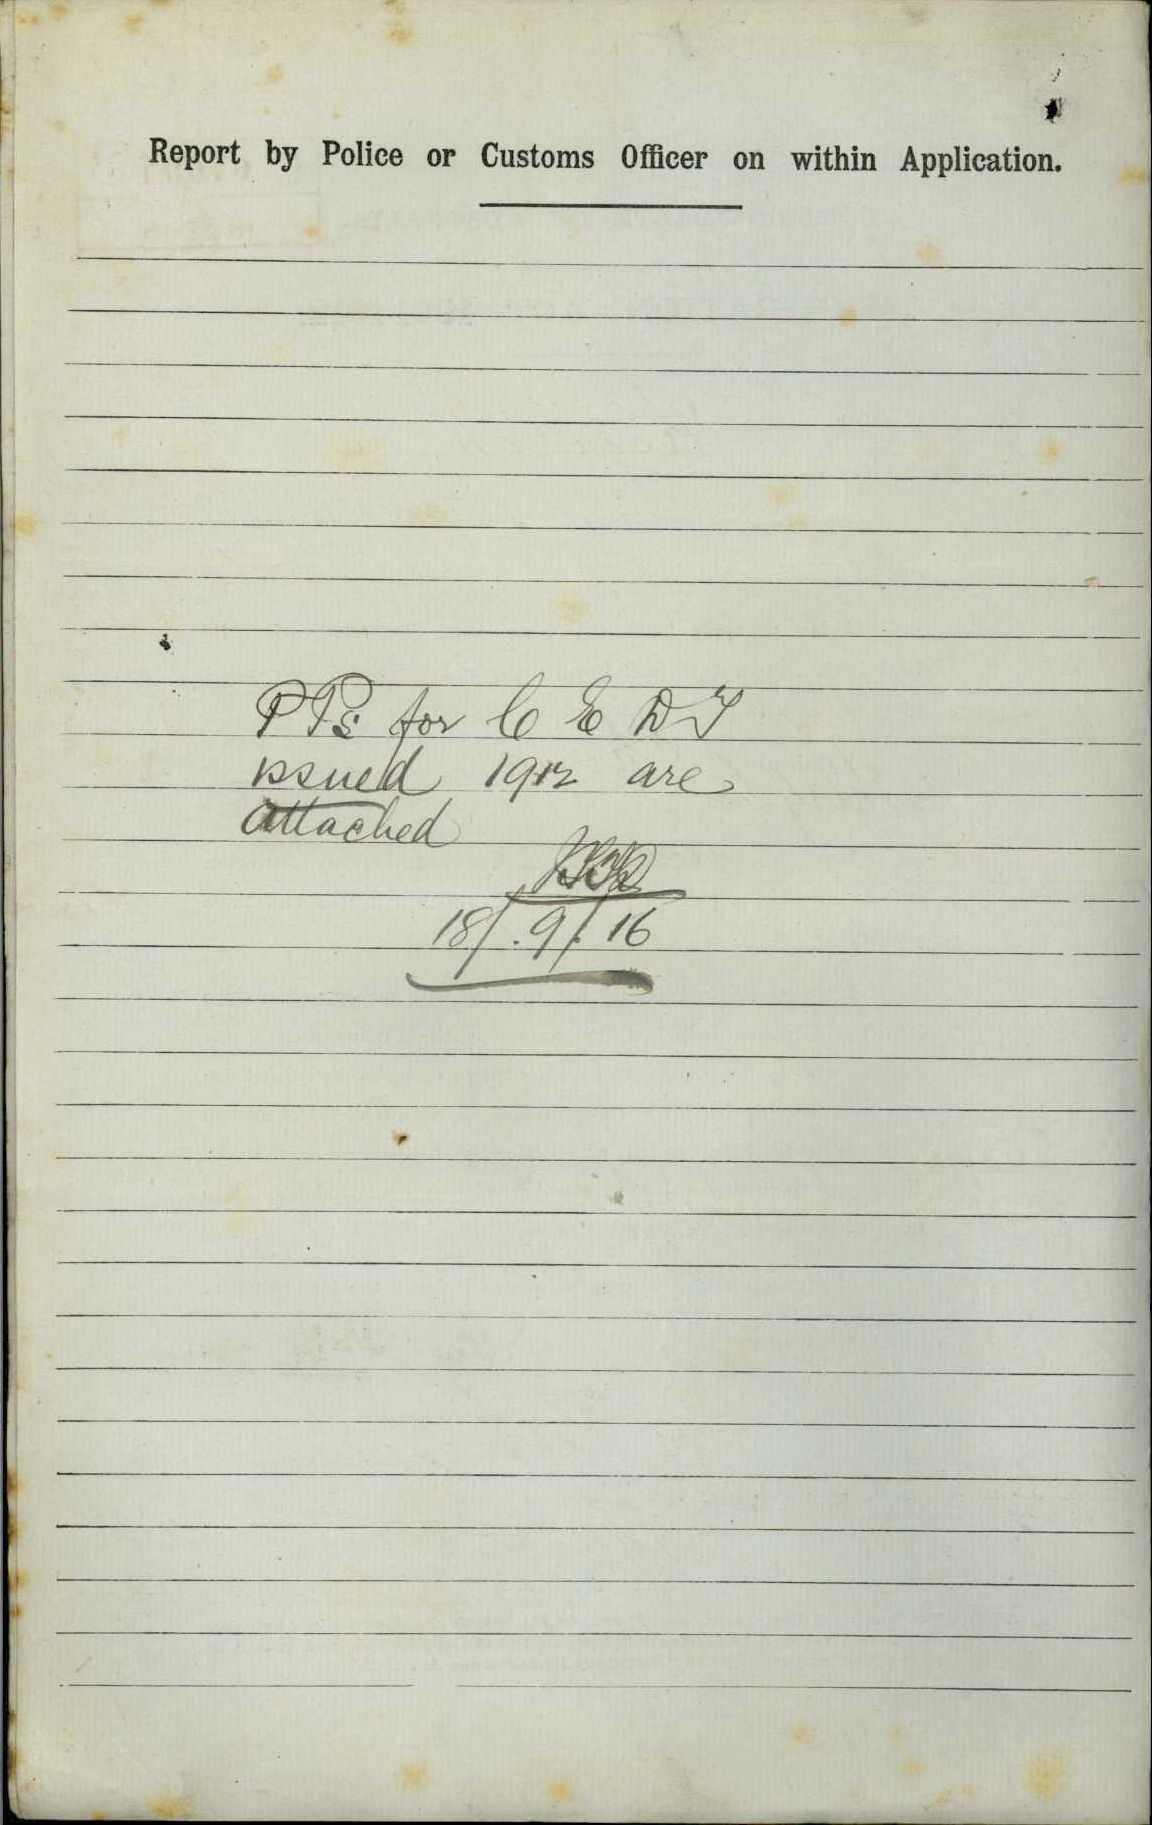 Report by Police or Customs Officer on within Application.
P Ps for C E D T
issued 1912 are
attached
18/.9/.16